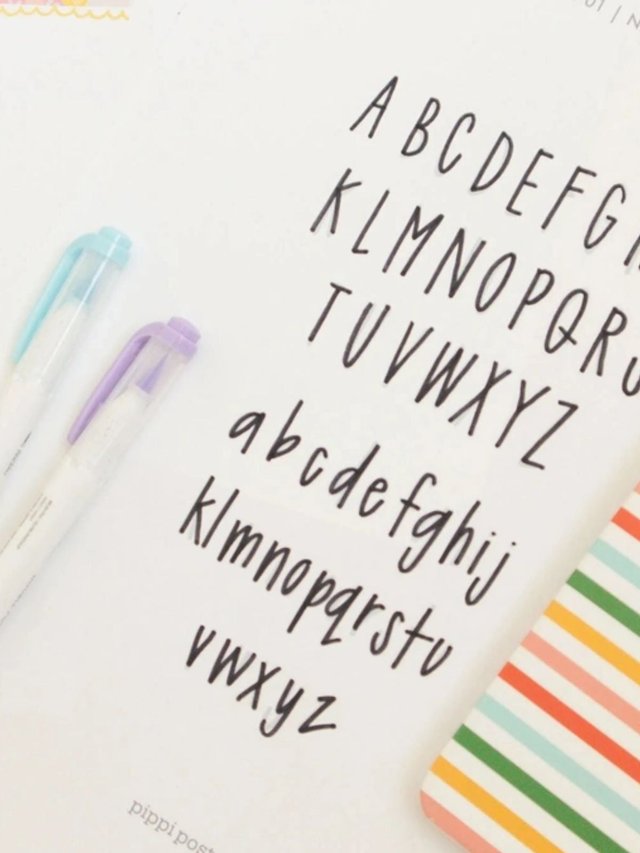 01 | N
A B C D E F G
K L M N O P Q R S
T U V W X Y Z
a b c d e f g h i j
k l m n o p q r s t u
v w x y z
pippi post